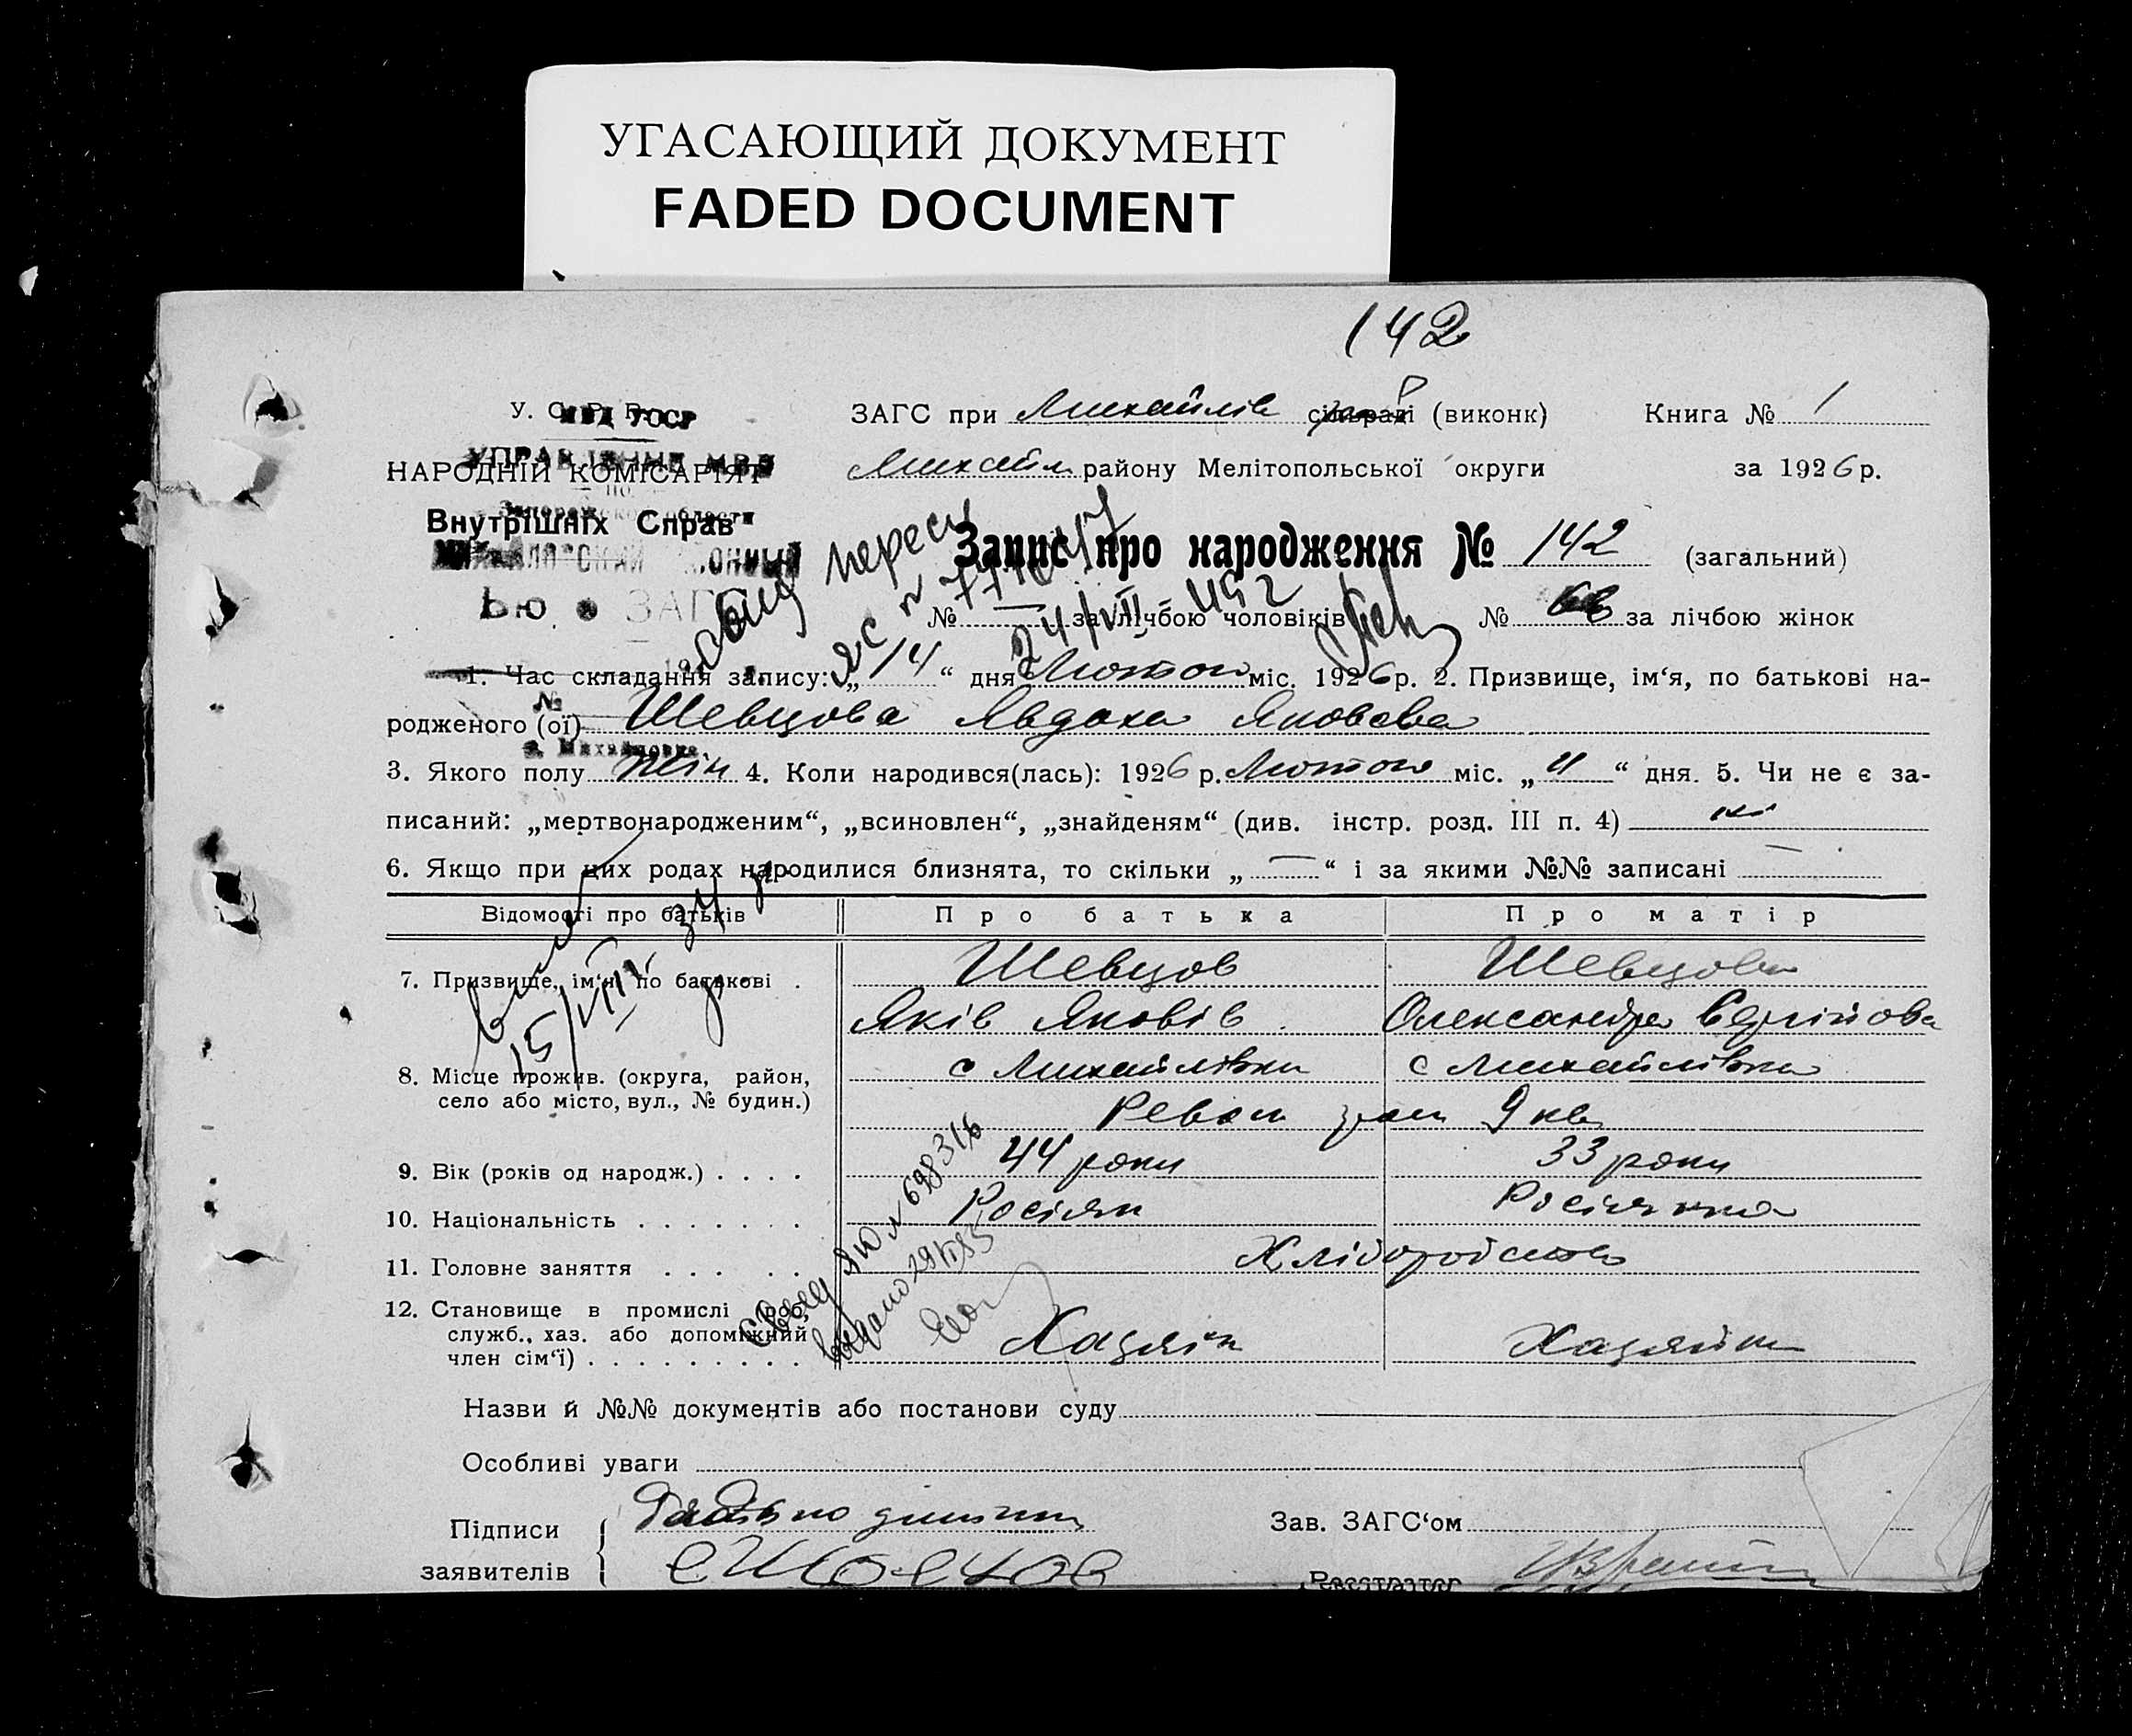 УГАСАЮЩИЙ ДОКУМЕНТ
FADED DOCUMENT
142
У. С. Р. Р. ЗАГС при Михайлів сільраді (виконк) Книга № 1
МВД УССР
УПРАВЛЕНИЕ МВД
НАРОДНІЙ КОМІСАРІЯТ Михайл. району Мелітопольської округи за 1926 р.
по
Запорожской области
Внутрішніх Справ Запис про народження № 142 (загальний)
Бюро ЗАГС
№ — за лічбою чоловіків № за лічбою жінок
24/VII
1. Час складання запису: „14“ дня Лютого міс. 1926 р. 2. Призвище, ім‘я, по батькові на-
№
родженого (ої) Шевцова Явдоха Яковова
с. Михайловка
3. Якого полу жін 4. Коли народився(лась): 1926 р. Лютого міс. „11“ дня. 5. Чи не є за-
писаний: „мертвонародженим“, „всиновлен“, „знайденям“ (див. інстр. розд. III п. 4) ні
6. Якщо при цих родах народилися близнята, то скільки „—“ і за якими №№ записані —
Відомості про батьків Про батька Про матір
7. Призвище, ім‘я, по батькові . Шевцов Шевцова
Яків Яковів Олександра
15/VIII 34 р.
8. Місце прожив. (округа, район, с Михайлівка с Михайлівка
село або місто, вул., № будин.)
9 кв
9. Вік (років од народж.) . . . . 44 роки 33 роки
10. Національність . . . . . . . Росіян Росіянка
11. Головне заняття . . . . . Хліборобство
12. Становище в промислі (роб.,
служб., хаз. або допоміжний
член сім‘ї) . . . . . . . . . Хазяїн Хазяйка
Назви й №№ документів або постанови суду
Особливі уваги
Підписи Зав. ЗАГС‘ом
заявителів
Реєстратор